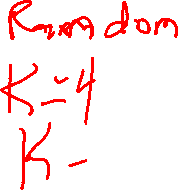 Random
K=4
K-